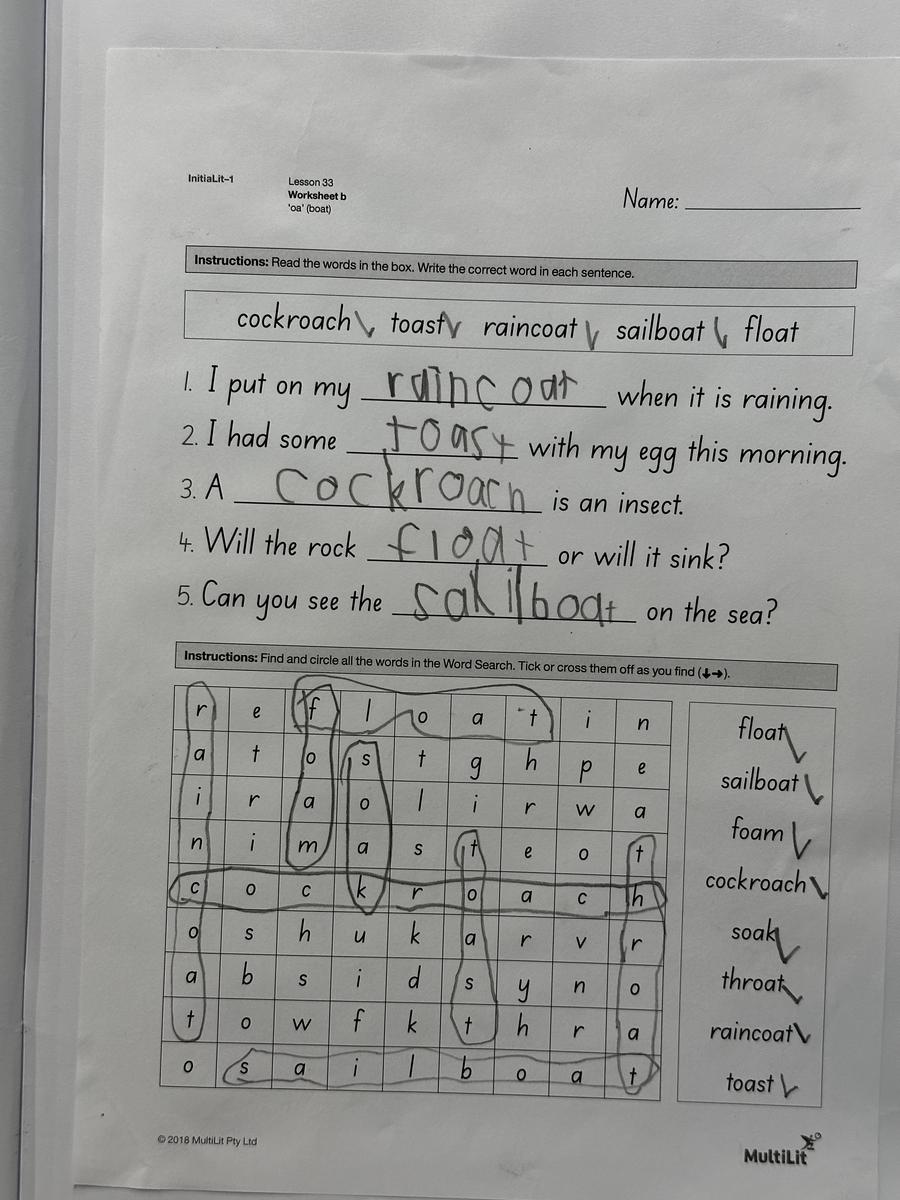 InitiaLit–1
Lesson 33
Worksheet b
'oa' (boat)
Name:
Instructions: Read the words in the box. Write the correct word in each sentence.
cockroach toast raincoat sailboat float
1. I put on my raincoat when it is raining.
2. I had some toast with my egg this morning.
3. A cockroach is an insect.
4. Will the rock float or will it sink?
5. Can you see the sailboat on the sea?
Instructions: Find and circle all the words in the Word Search. Tick or cross them off as you find (↓→).
r e f l o a t i n
a t o s t g h p e
i r a o l i r w a
n i m a s t e o t
c o c k r o a c h
o s h u k a r v r
a b s i d s y n o
t o w f k t h r a
o s a i l b o a t
float
sailboat
foam
cockroach
soak
throat
raincoat
toast
© 2018 MultiLit Pty Ltd
MultiLit